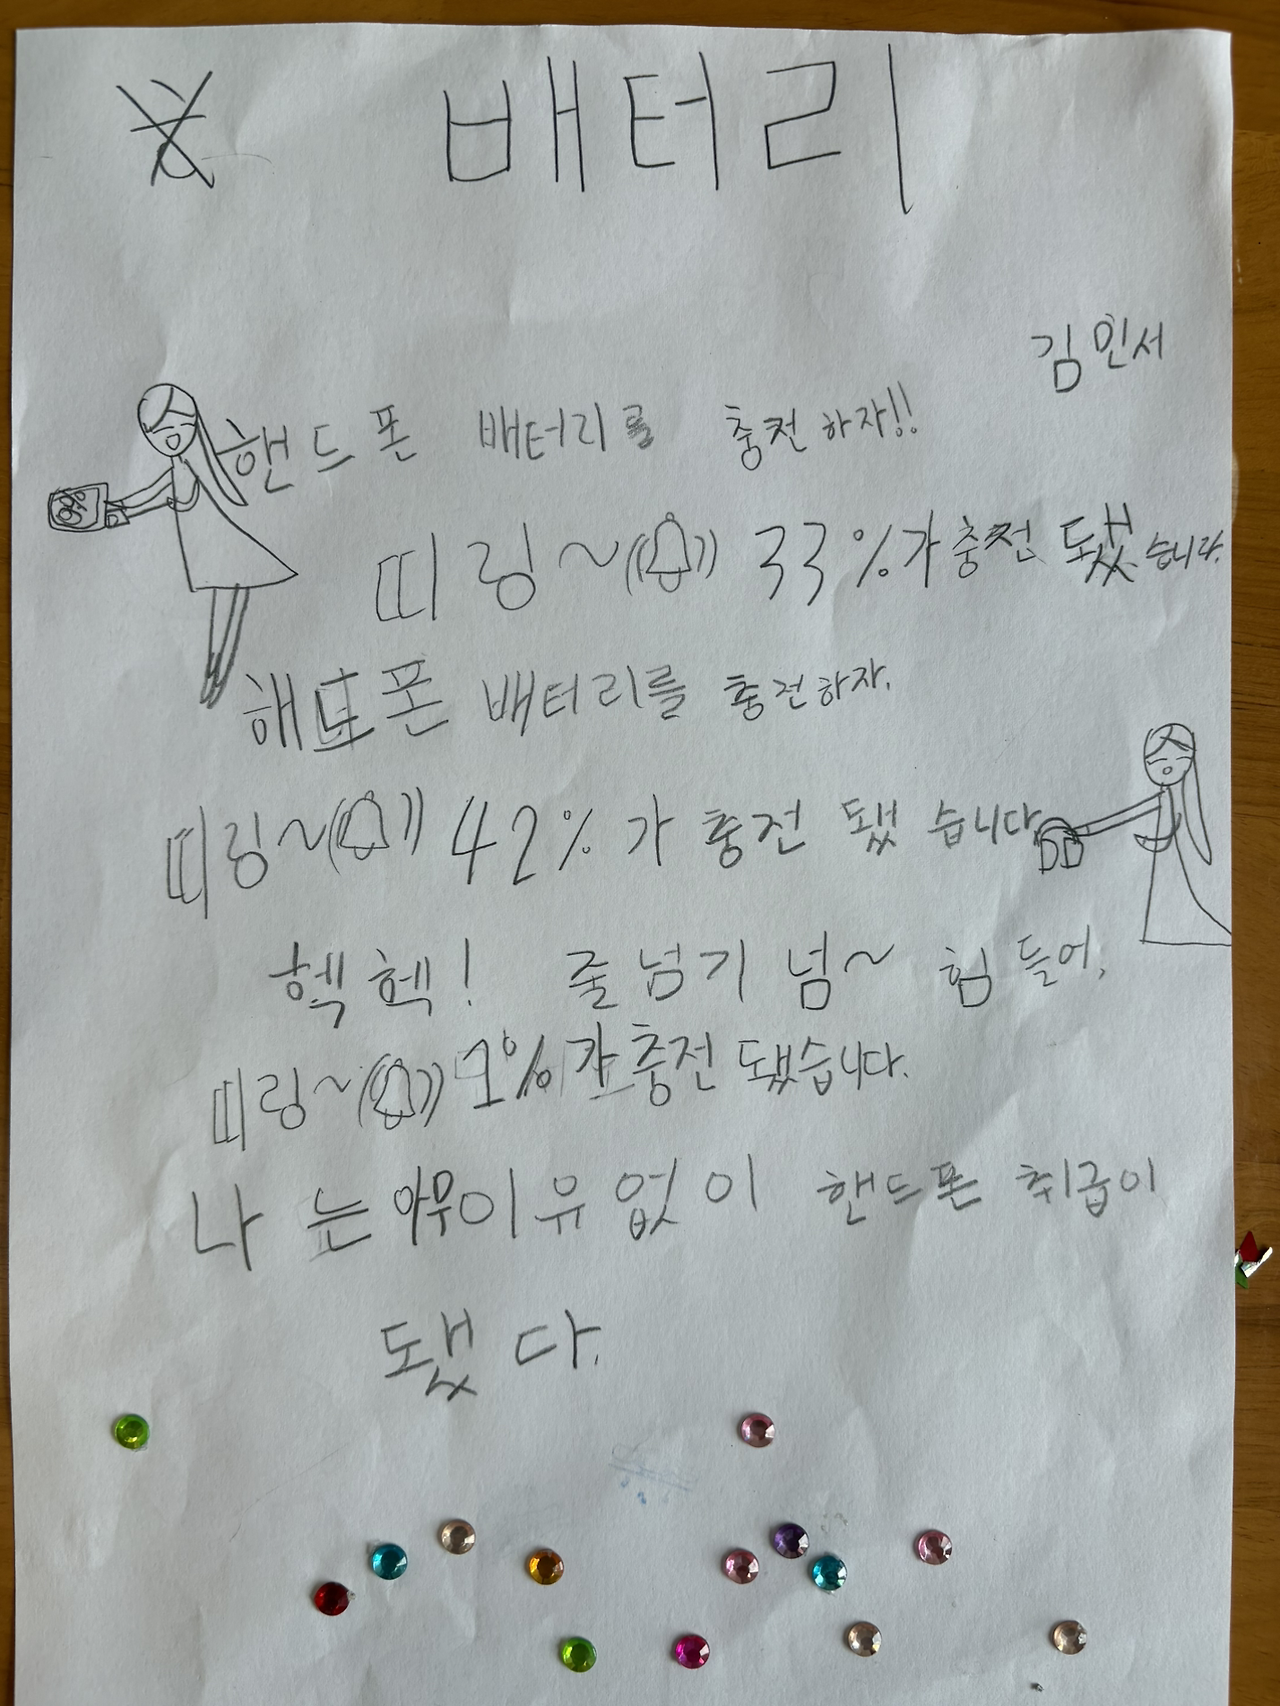 배터리
김민서
핸드폰 배터리를 충전하자!!
띠링~ 33%가 충전 됐습니다.
해드폰 배터리를 충전하자.
띠링~ 42%가 충전 됐습니다
헥헥! 줄넘기 넘~ 힘들어,
띠링~ 1%가 충전 됐습니다.
나는 아무이유없이 핸드폰 취급이
됐다.